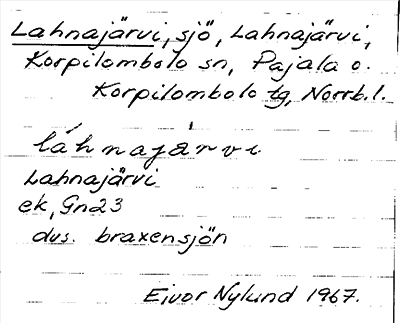 Lahnajärvi, sjö, Lahnajärvi,
Korpilombolo sn, Pajala o.
Korpilombolo tg, Norrb. l.
láhnajærvi
Lahnajärvi
ek, Gn23
dvs. braxensjön
Eivor Nylund 1967.